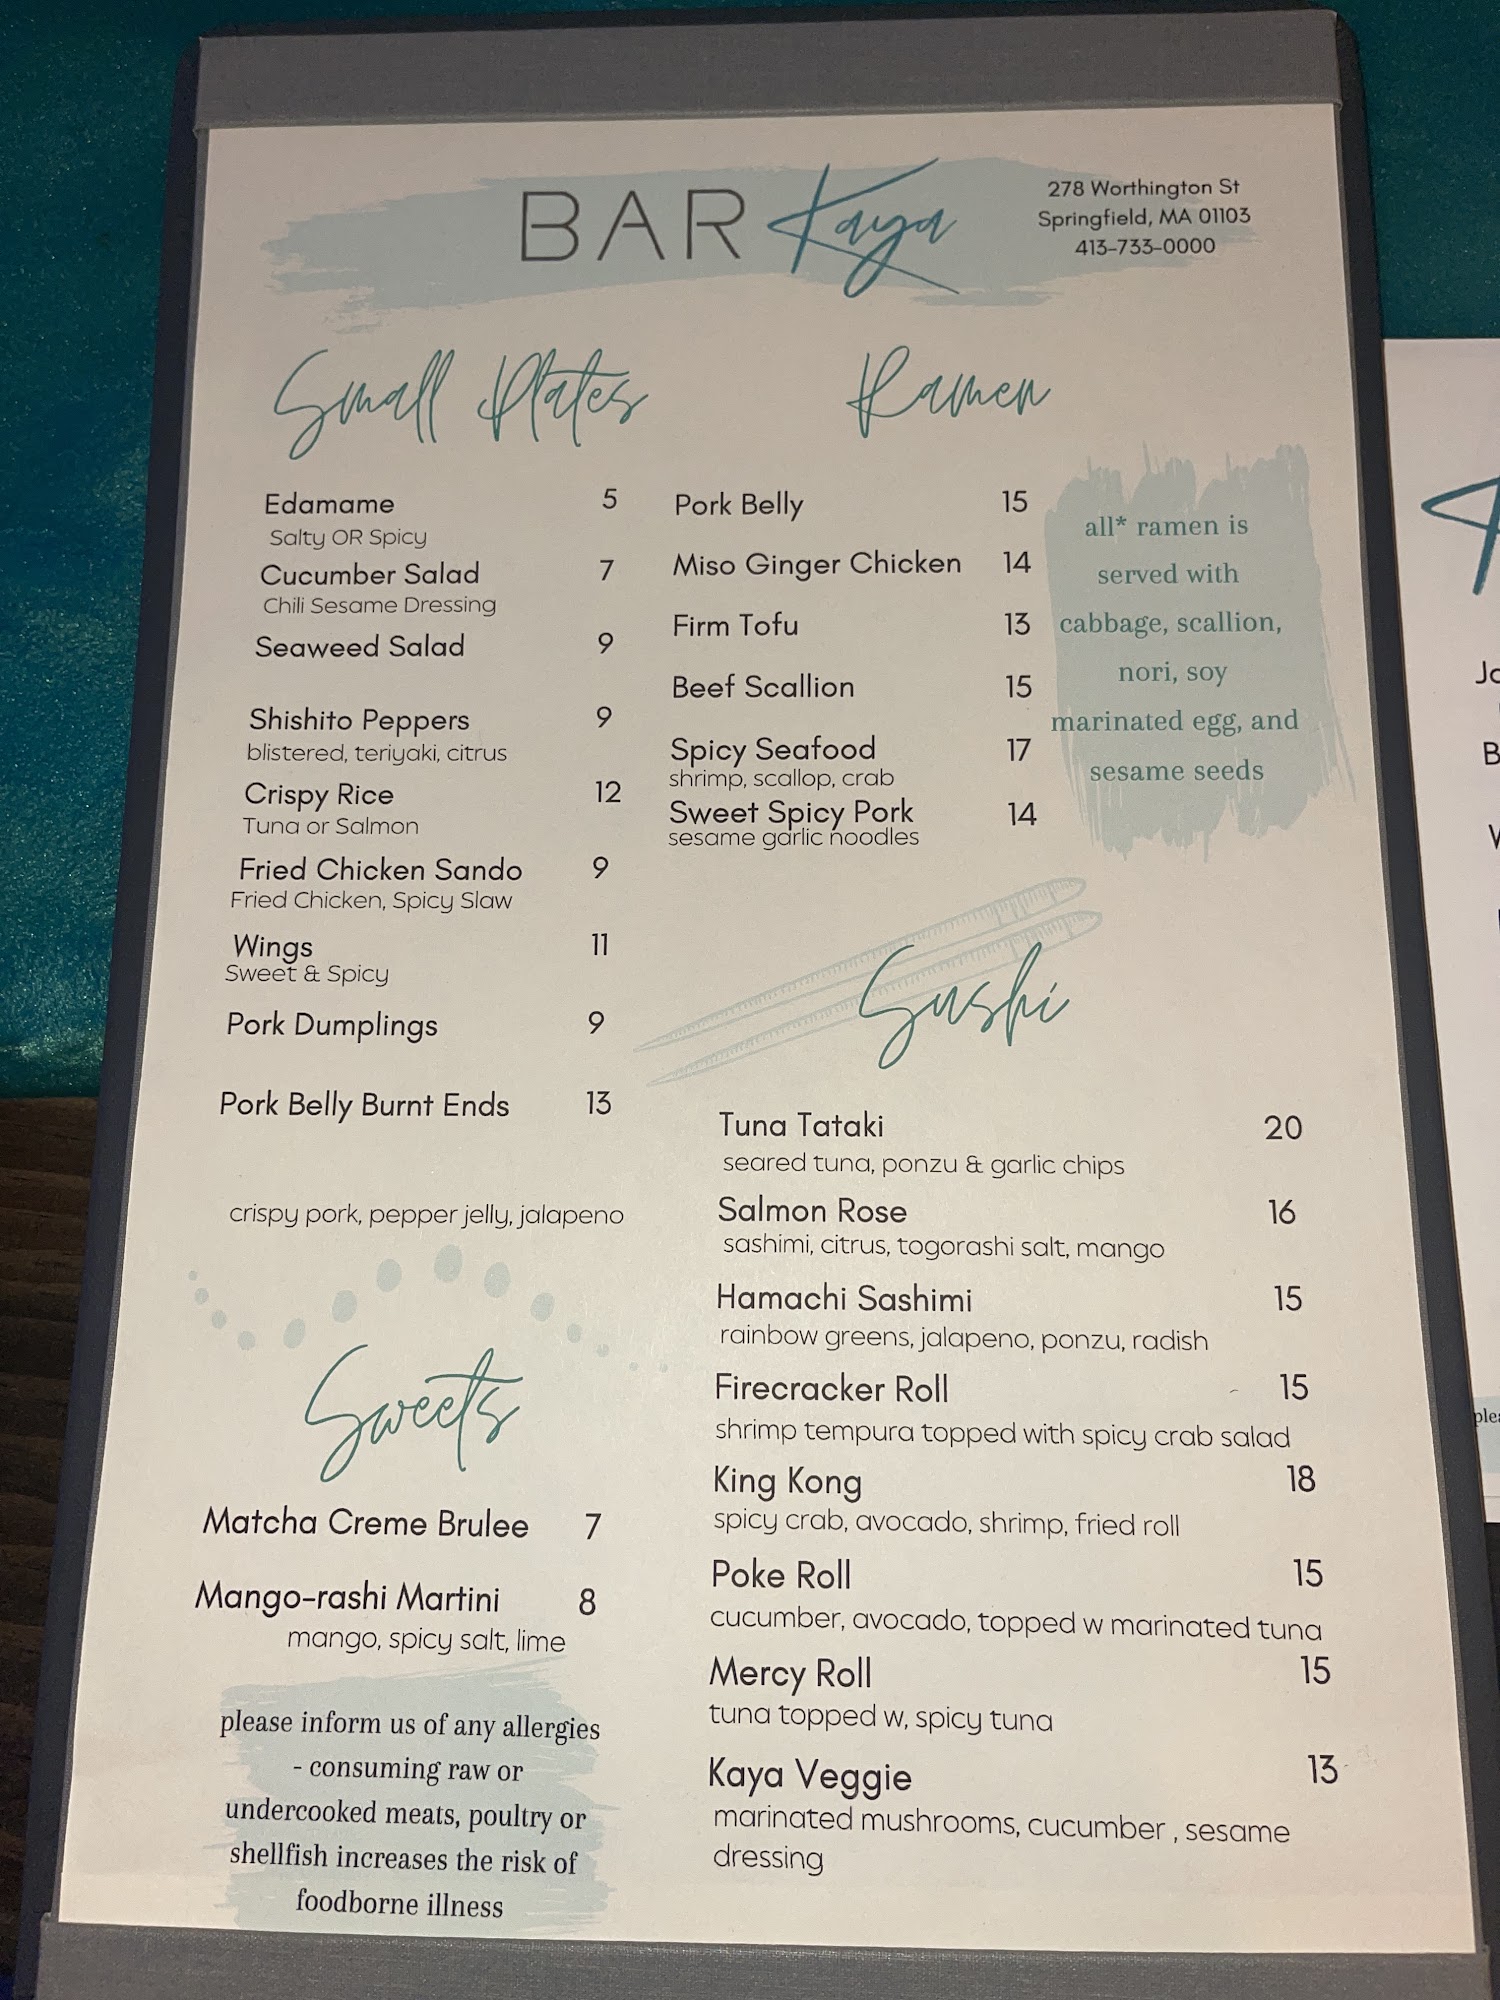 BAR Kaya
278 Worthington St
Springfield, MA 01103
413-733-0000
Small Plates
Edamame 5
Salty OR Spicy
Cucumber Salad 7
Chili Sesame Dressing
Seaweed Salad 9
Shishito Peppers 9
blistered, teriyaki, citrus
Crispy Rice 12
Tuna or Salmon
Fried Chicken Sando 9
Fried Chicken, Spicy Slaw
Wings 11
Sweet & Spicy
Pork Dumplings 9
Pork Belly Burnt Ends 13
crispy pork, pepper jelly, jalapeno
Sweets
Matcha Creme Brulee 7
Mango-rashi Martini 8
mango, spicy salt, lime
please inform us of any allergies
- consuming raw or
undercooked meats, poultry or
shellfish increases the risk of
foodborne illness
Ramen
Pork Belly 15
Miso Ginger Chicken 14
Firm Tofu 13
Beef Scallion 15
Spicy Seafood 17
shrimp, scallop, crab
Sweet Spicy Pork 14
sesame garlic noodles
all* ramen is
served with
cabbage, scallion,
nori, soy
marinated egg, and
sesame seeds
Sushi
Tuna Tataki 20
seared tuna, ponzu & garlic chips
Salmon Rose 16
sashimi, citrus, togorashi salt, mango
Hamachi Sashimi 15
rainbow greens, jalapeno, ponzu, radish
Firecracker Roll 15
shrimp tempura topped with spicy crab salad
King Kong 18
spicy crab, avocado, shrimp, fried roll
Poke Roll 15
cucumber, avocado, topped w marinated tuna
Mercy Roll 15
tuna topped w, spicy tuna
Kaya Veggie 13
marinated mushrooms, cucumber , sesame
dressing